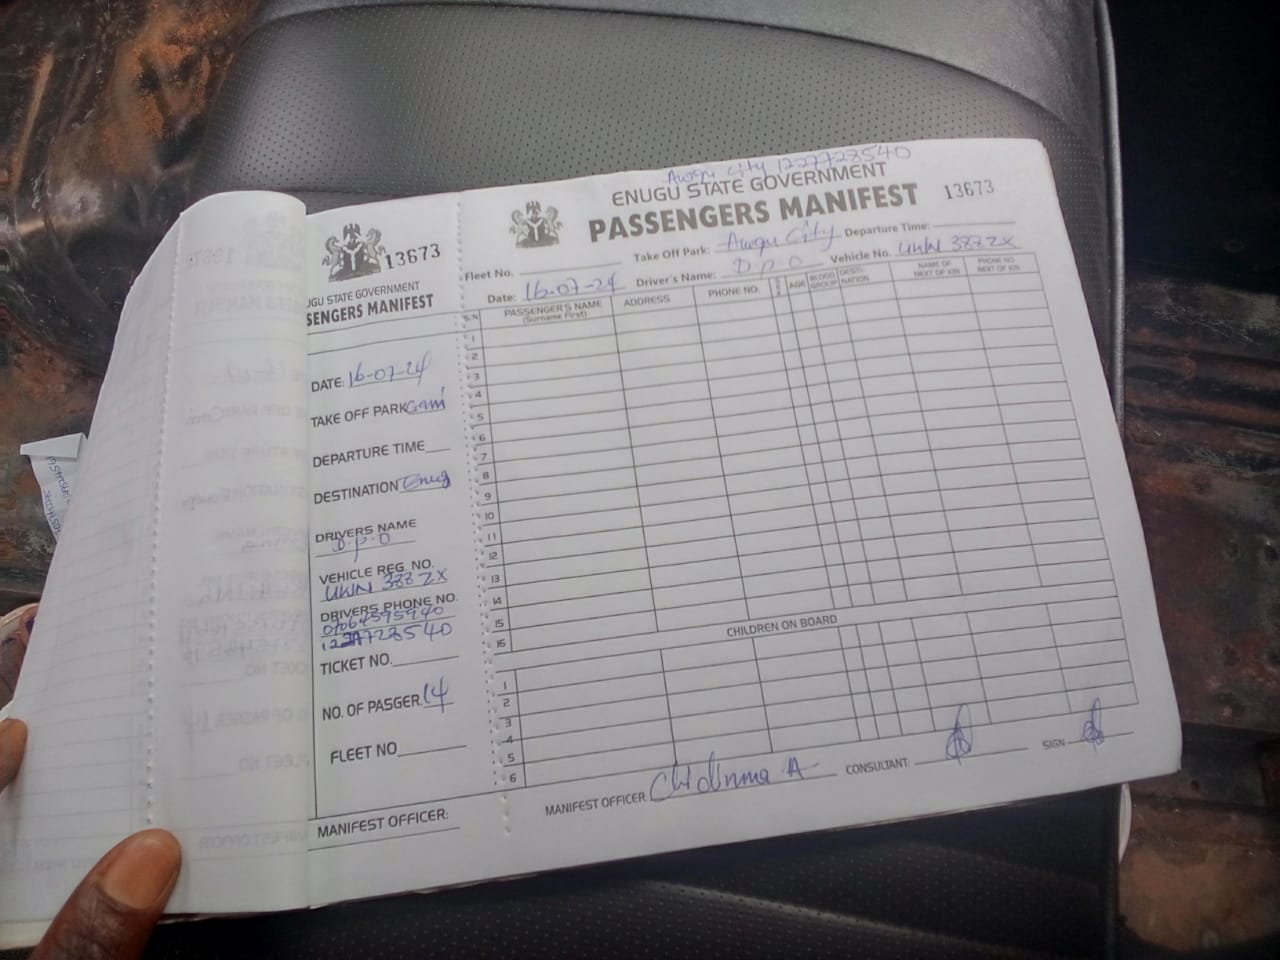 13673
UGU STATE GOVERNMENT
SENGERS MANIFEST
DATE: 16-07-24
TAKE OFF PARK Gami
DEPARTURE TIME
DESTINATION Enug
DRIVERS NAME
D.P.O
VEHICLE REG. NO.
UWN 388 ZX
DRIVERS PHONE NO.
07064595940
1227728540
TICKET NO.
NO. OF PASGER. 14
FLEET NO
MANIFEST OFFICER:
Awgu City 1227728540
ENUGU STATE GOVERNMENT
PASSENGERS MANIFEST 13673
Fleet No. Take Off Park: Awgu City Departure Time:
Date: 16-07-24 Driver's Name: D.P.O Vehicle No. UWN 388 ZX
S/N PASSENGER'S NAME (Surname First) ADDRESS PHONE NO. SEX AGE BLOOD GROUP DESTI-NATION NAME OF NEXT OF KIN PHONE NO. NEXT OF KIN
1
2
3
4
5
6
7
8
9
10
11
12
13
14
15
16
CHILDREN ON BOARD
1
2
3
4
5
6
MANIFEST OFFICER Chidinma A CONSULTANT: SIGN